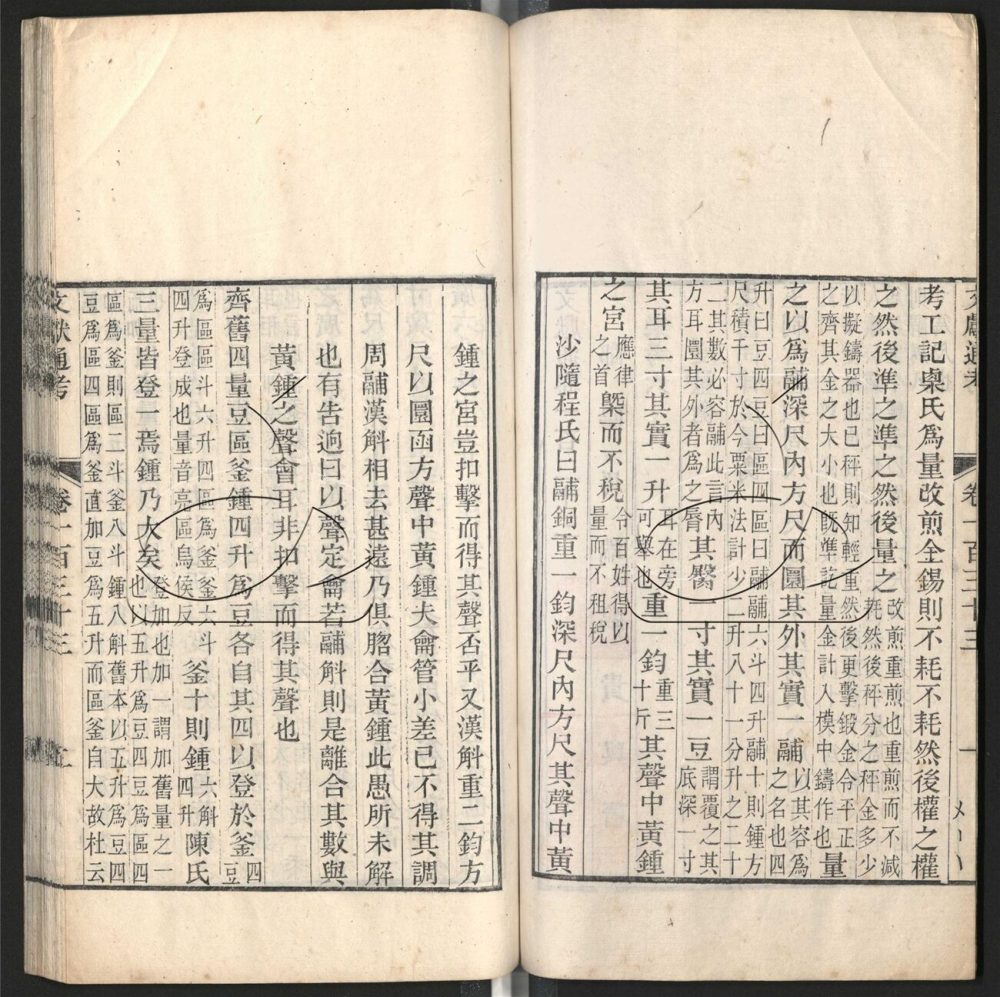 文獻通考 卷一百三十三
考工記㮚氏爲量改煎金錫則不耗不耗然後權之權
之然後準之準之然後量之改煎重煎也重煎而不減耗然後秤分之秤金多少
以擬鑄器也已秤則知輕重然後更擊鍛金令平正之齊其金之大小也旣準訖量金計入模中鑄作也量
之以爲鬴深尺內方尺而圜其外其實一鬴以其容爲之名也四
升曰豆四豆曰區四區曰鬴鬴六斗四升鬴十則鍾方尺積千寸於今粟米法計少二升八十一分升之二十
二其數必容鬴此言內方耳圜其外者爲之脣其臋一寸其實一豆謂覆之其底深一寸
其耳三寸其實一升耳在旁可舉也重一鈞重三十斤其聲中黃鍾
之宮應律之首槩而不稅令百姓得以量而不租稅
沙隨程氏曰鬴銅重一鈞深尺內方尺其聲中黃
鍾之宮豈扣擊而得其聲否乎又漢斛重二鈞方
尺以圜函方聲中黃鍾夫龠管小差已不得其調
周鬴漢斛相去甚遠乃俱脗合黃鍾此愚所未解
也有告迥曰以聲定龠若鬴斛則是離合其數與
黃鍾之聲會耳非扣擊而得其聲也
齊舊四量豆區釜鍾四升爲豆各自其四以登於釜四豆
爲區區斗六升四區爲釜釜六斗四升登成也量音亮區烏侯反釜十則鍾六斛四升陳氏
三量皆登一焉鍾乃大矣登加也加一謂加舊量之一也以五升爲豆四豆爲區四
區爲釜則區二斗釜八斗鍾八斛舊本以五升爲豆四豆爲區四區爲釜直加豆爲五升而區釜自大故杜云
文獻通考 卷一百三十三